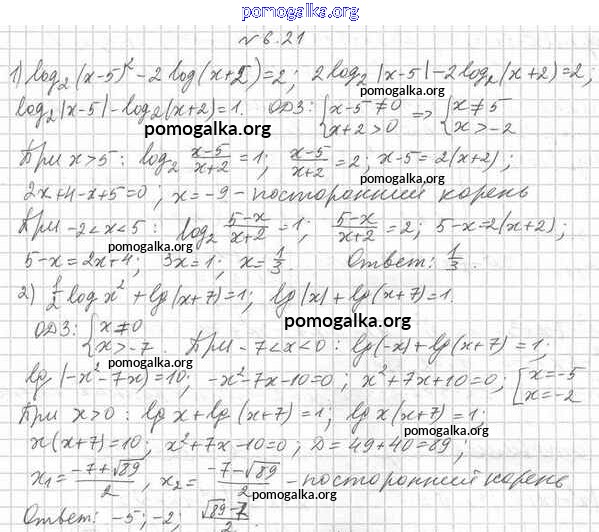 pomogalka.org
№ 6.21
1) log₂(x-5)² - 2 log(x+2) = 2; 2 log₂|x-5| - 2 log₂(x+2) = 2;
log₂|x-5| - log₂(x+2) = 1. ОДЗ: { x-5≠0 x+2>0 => { x≠5 x>-2
pomogalka.org
При x>5: log₂ (x-5)/(x+2) = 1; (x-5)/(x+2) = 2; x-5 = 2(x+2);
pomogalka.org
2x+4-x+5=0; x=-9 - посторонний корень
При -2<x<5: log₂ (5-x)/(x+2) = 1; (5-x)/(x+2) = 2; 5-x=2(x+2);
pomogalka.org pomogalka.org
5-x=2x+4; 3x=1; x=1/3. Ответ: 1/3.
2) 1/2 log x² + lg(x+7)=1; lg|x| + lg(x+7)=1.
pomogalka.org
ОДЗ: { x≠0 x>-7. При -7<x<0: lg(-x)+lg(x+7)=1;
pomogalka.org
lg(-x²-7x)=10; -x²-7x-10=0; x²+7x+10=0; [ x=-5 x=-2
При x>0: lg x + lg(x+7)=1; lg x(x+7)=1;
pomogalka.org
x(x+7)=10; x²+7x-10=0; D=49+40=89;
x₁= (-7+√89)/2, x₂= (-7-√89)/2 - посторонний корень
pomogalka.org
Ответ: -5; -2; (√89-7)/2.